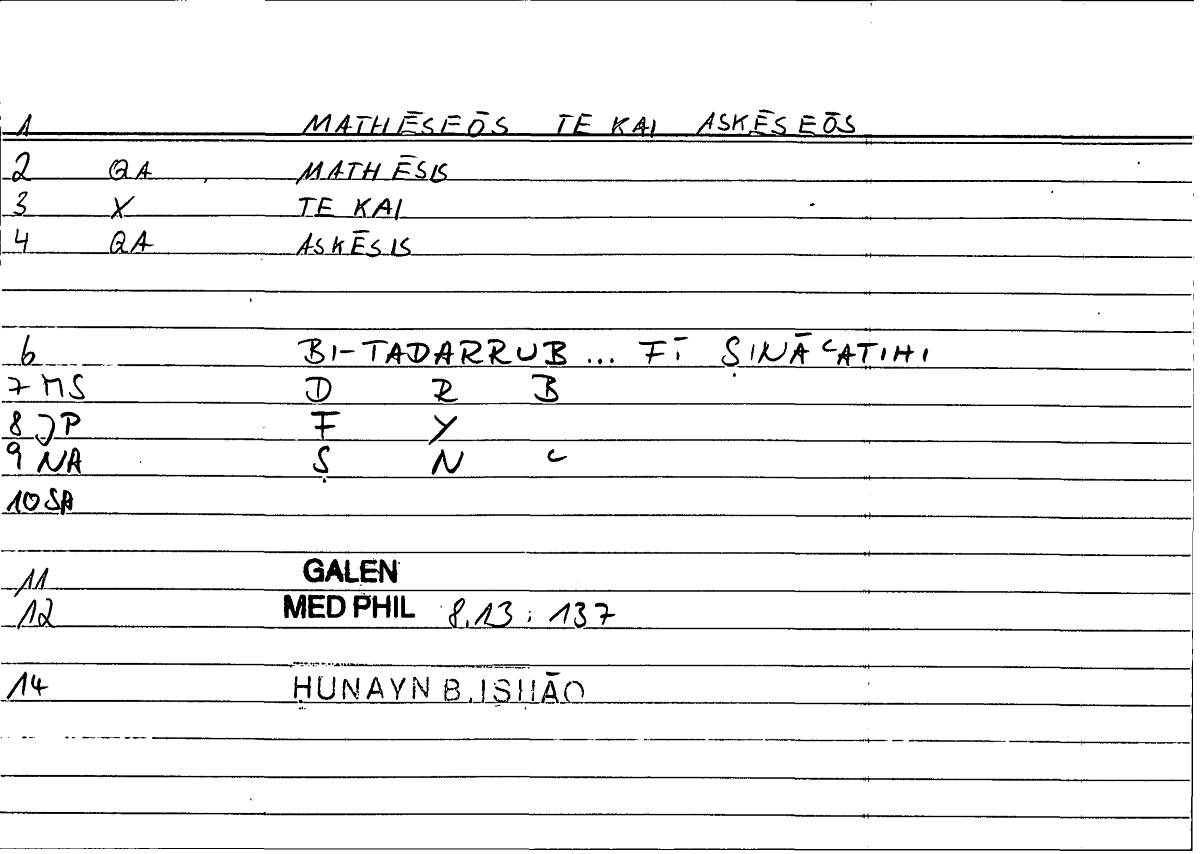 1 MATHĒSEŌS TE KAI ASKĒSEŌS
2 QA MATHĒSIS
3 X TE KAI
4 QA ASKĒSIS
6 BI-TADARRUB ... FĪ ṢINĀʿATIHI
7 MS D R B
8 JP F Y
9 NA Ṣ N ʿ
10 SA
11 GALEN
12 MED PHIL 8,13 : 137
14 ḤUNAYN B. ISḤĀQ